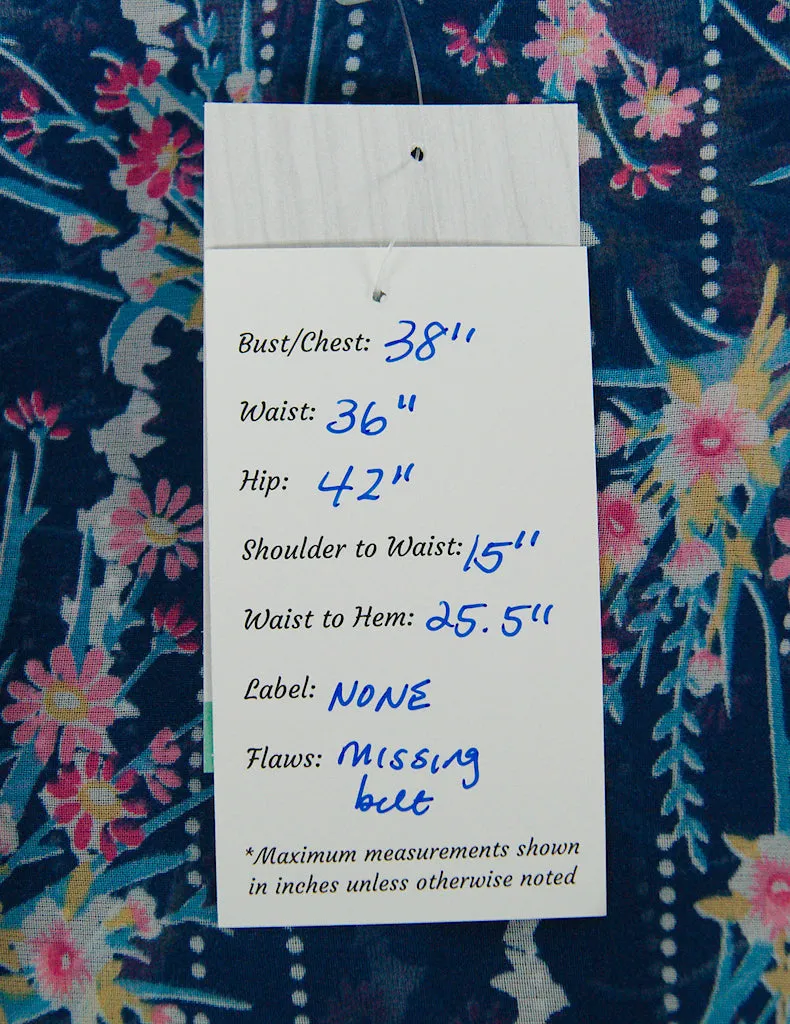 Bust/Chest: 38"
Waist: 36"
Hip: 42"
Shoulder to Waist: 15"
Waist to Hem: 25.5"
Label: NONE
Flaws: Missing
belt
*Maximum measurements shown
in inches unless otherwise noted